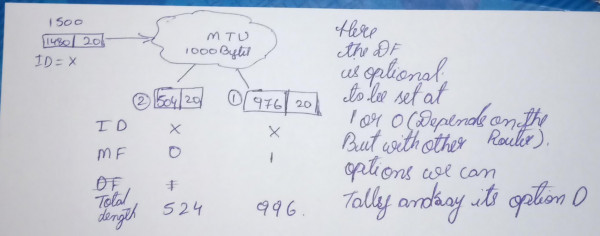 1500
1480 20
ID = X
MTU
1000 Bytes
② 504 20 ① 976 20
ID X X
MF 0 1
DF 1
Total Length 524 996.
Here
the DF
is optional
to be set at
1 or 0 (Depends on the
Router).
But with other
options we can
Tally and say its option D